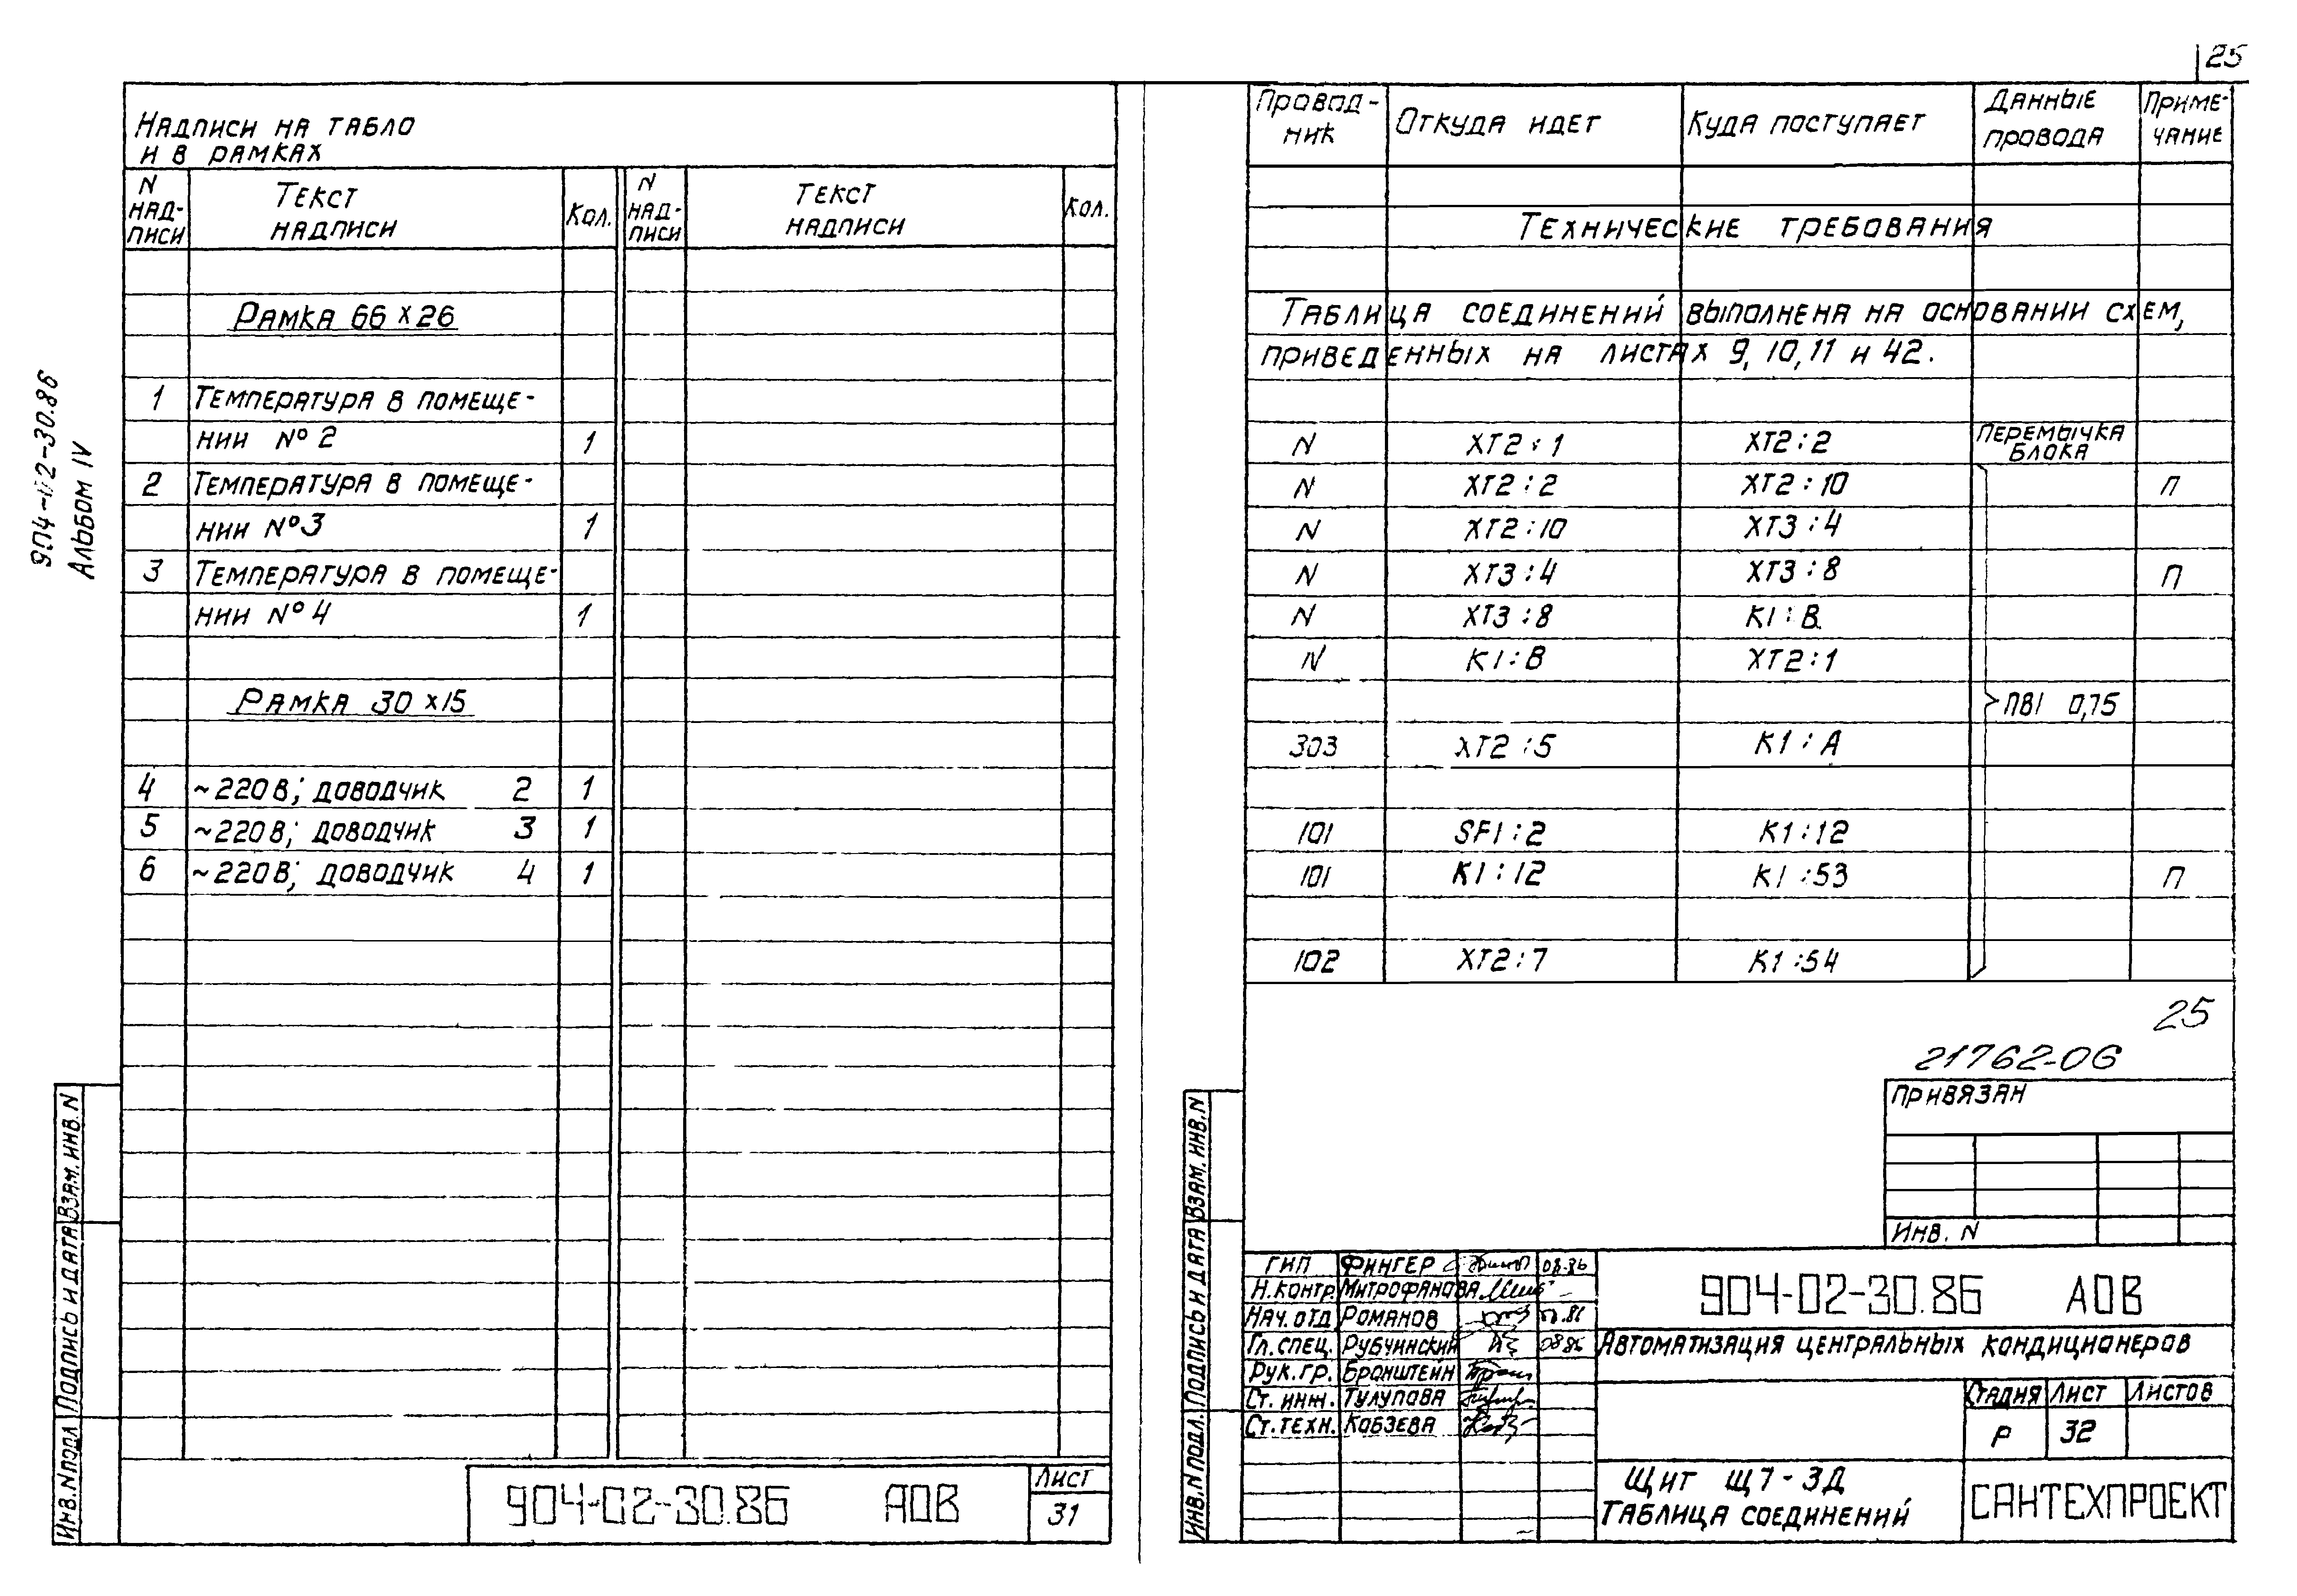 25
904-02-30.86
Альбом IV
Надписи на табло
и в рамках
N надписи Текст надписи Кол. N надписи Текст надписи Кол.
Рамка 66 х 26
1 Температура в помеще-
нии № 2 1
2 Температура в помеще-
нии № 3 1
3 Температура в помеще-
нии № 4 1
Рамка 30 х 15
4 ~220В; доводчик 2 1
5 ~220В; доводчик 3 1
6 ~220В; доводчик 4 1
Инв. N подл. Подпись и дата Взам. инв. N
904-02-30.86 АОВ
Лист
31
Провод-ник Откуда идет Куда поступает Данные провода Приме-чание
Технические требования
Таблица соединений выполнена на основании схем,
приведенных на листах 9, 10, 11 и 42.
N ХТ2:1 ХТ2:2 Перемычка блока
N ХТ2:2 ХТ2:10 П
N ХТ2:10 ХТ3:4
N ХТ3:4 ХТ3:8 П
N ХТ3:8 К1:В
N К1:В ХТ2:1
ПВ1 0,75
303 ХТ2:5 К1:А
101 SF1:2 К1:12
101 К1:12 К1:53 П
102 ХТ2:7 К1:54
25
21762-06
Привязан
Инв. N
Инв. N подл. Подпись и дата Взам. инв. N
ГИП Фингер 08.86
Н.контр. Митрофанова
Нач. отд Романов
Гл. спец. Рубчинский 08.86
Рук. гр. Бронштейн
Ст. инж. Тулупова
Ст. техн. Кобзева
904-02-30.86 АОВ
Автоматизация центральных кондиционеров
Стадия Лист Листов
Р 32
Щит Щ7-3Д
Таблица соединений
САНТЕХПРОЕКТ